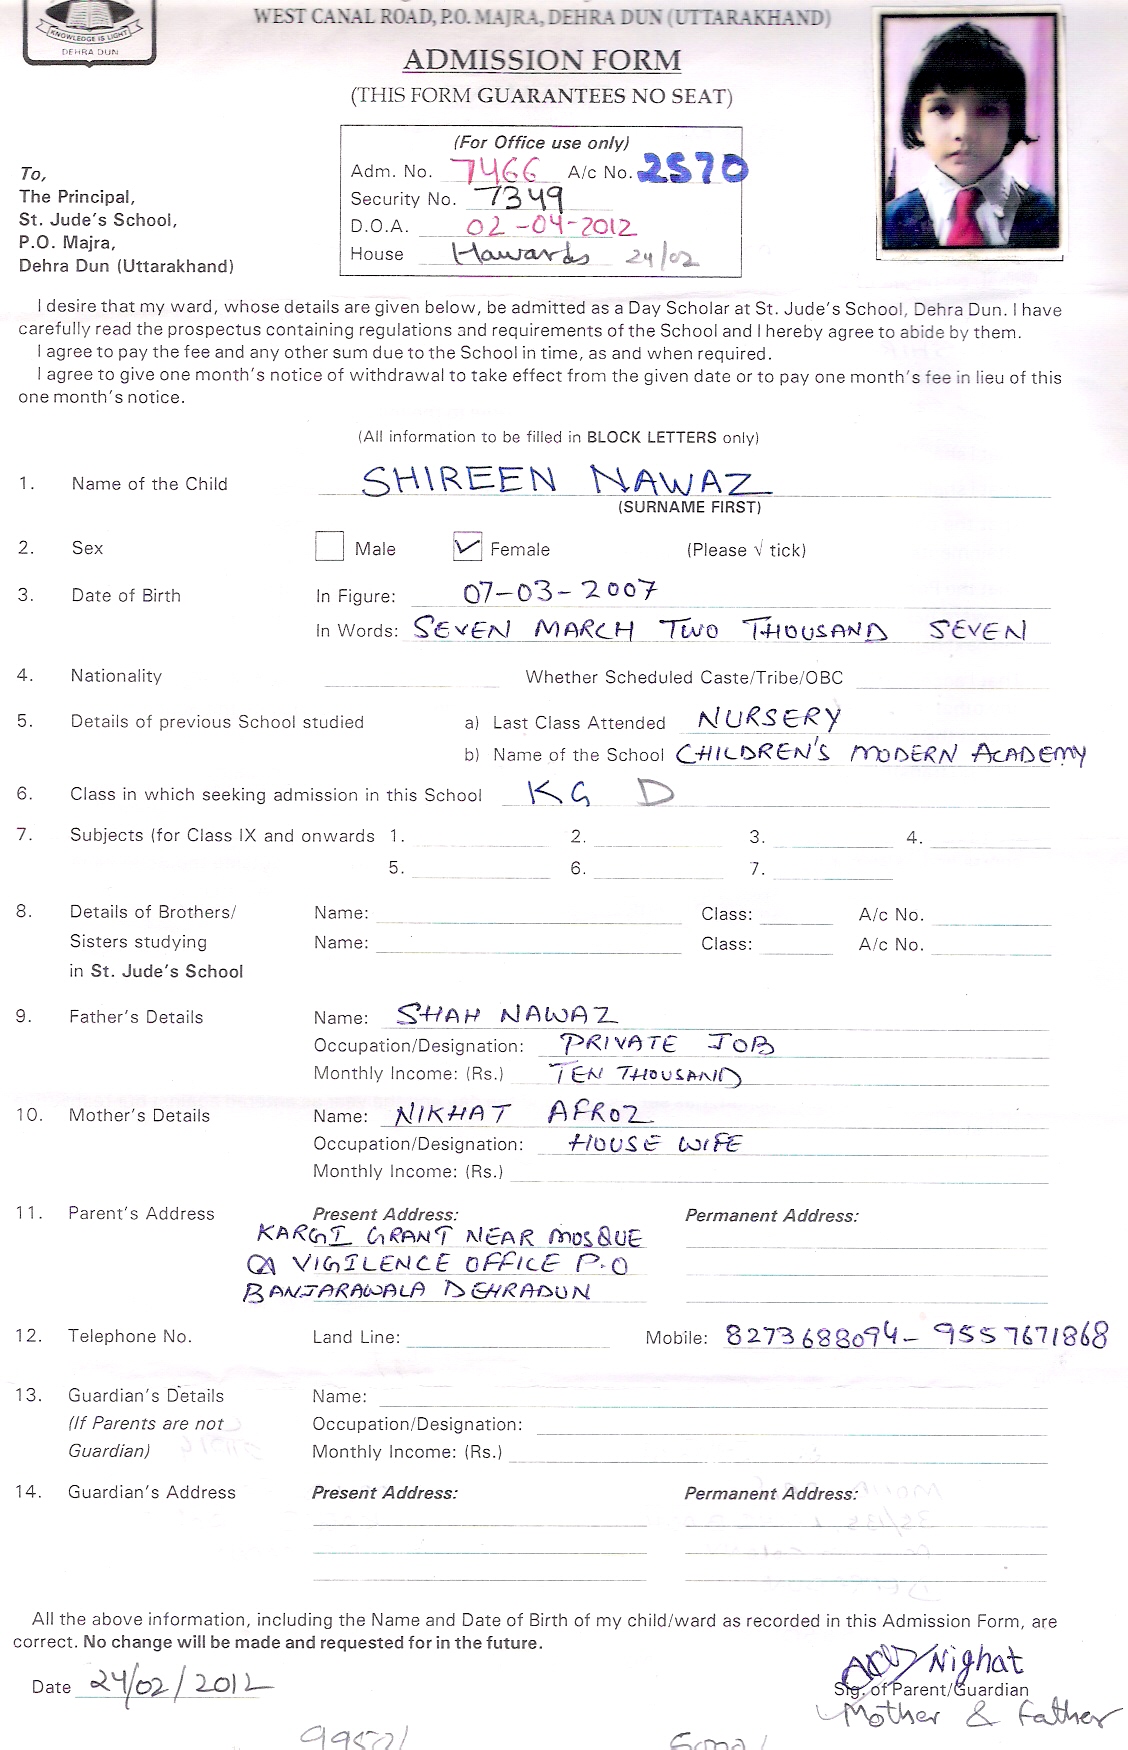 KNOWLEDGE IS LIGHT
DEHRA DUN
WEST CANAL ROAD, P.O. MAJRA, DEHRA DUN (UTTARAKHAND)
ADMISSION FORM
(THIS FORM GUARANTEES NO SEAT)
(For Office use only)
Adm. No. 7466 A/c No. 2570
Security No. 7349
D.O.A. 02-04-2012
House Hawards 24/02
To,
The Principal,
St. Jude's School,
P.O. Majra,
Dehra Dun (Uttarakhand)
I desire that my ward, whose details are given below, be admitted as a Day Scholar at St. Jude's School, Dehra Dun. I have
carefully read the prospectus containing regulations and requirements of the School and I hereby agree to abide by them.
I agree to pay the fee and any other sum due to the School in time, as and when required.
I agree to give one month's notice of withdrawal to take effect from the given date or to pay one month's fee in lieu of this
one month's notice.
(All information to be filled in BLOCK LETTERS only)
1. Name of the Child SHIREEN NAWAZ
(SURNAME FIRST)
2. Sex Male ✓ Female (Please √ tick)
3. Date of Birth In Figure: 07-03-2007
In Words: SEVEN MARCH TWO THOUSAND SEVEN
4. Nationality Whether Scheduled Caste/Tribe/OBC
5. Details of previous School studied a) Last Class Attended NURSERY
b) Name of the School CHILDREN'S MODERN ACADEMY
6. Class in which seeking admission in this School KG D
7. Subjects (for Class IX and onwards 1. 2. 3. 4.
5. 6. 7.
8. Details of Brothers/ Name: Class: A/c No.
Sisters studying Name: Class: A/c No.
in St. Jude's School
9. Father's Details Name: SHAH NAWAZ
Occupation/Designation: PRIVATE JOB
Monthly Income: (Rs.) TEN THOUSAND
10. Mother's Details Name: NIKHAT AFROZ
Occupation/Designation: HOUSE WIFE
Monthly Income: (Rs.)
11. Parent's Address Present Address: Permanent Address:
KARGI GRANT NEAR MOSQUE
VIGILENCE OFFICE P.O
BANJARAWALA DEHRADUN
12. Telephone No. Land Line: Mobile: 8273688094 - 9557671868
13. Guardian's Details Name:
(If Parents are not Occupation/Designation:
Guardian) Monthly Income: (Rs.)
14. Guardian's Address Present Address: Permanent Address:
All the above information, including the Name and Date of Birth of my child/ward as recorded in this Admission Form, are
correct. No change will be made and requested for in the future.
Nighat
Date 24/02/2012 Sig. of Parent/Guardian
Mother & Father